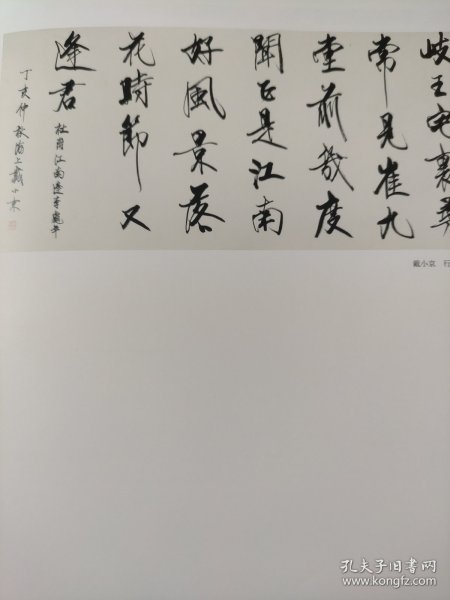 岐王宅裏尋
常見崔九
堂前幾度
聞正是江南
好風景落
花時節又
逢君
杜甫江南逢李龜年
丁亥仲秋海上戴小京
戴小京 行
孔夫子旧书网
www.kongfz.com